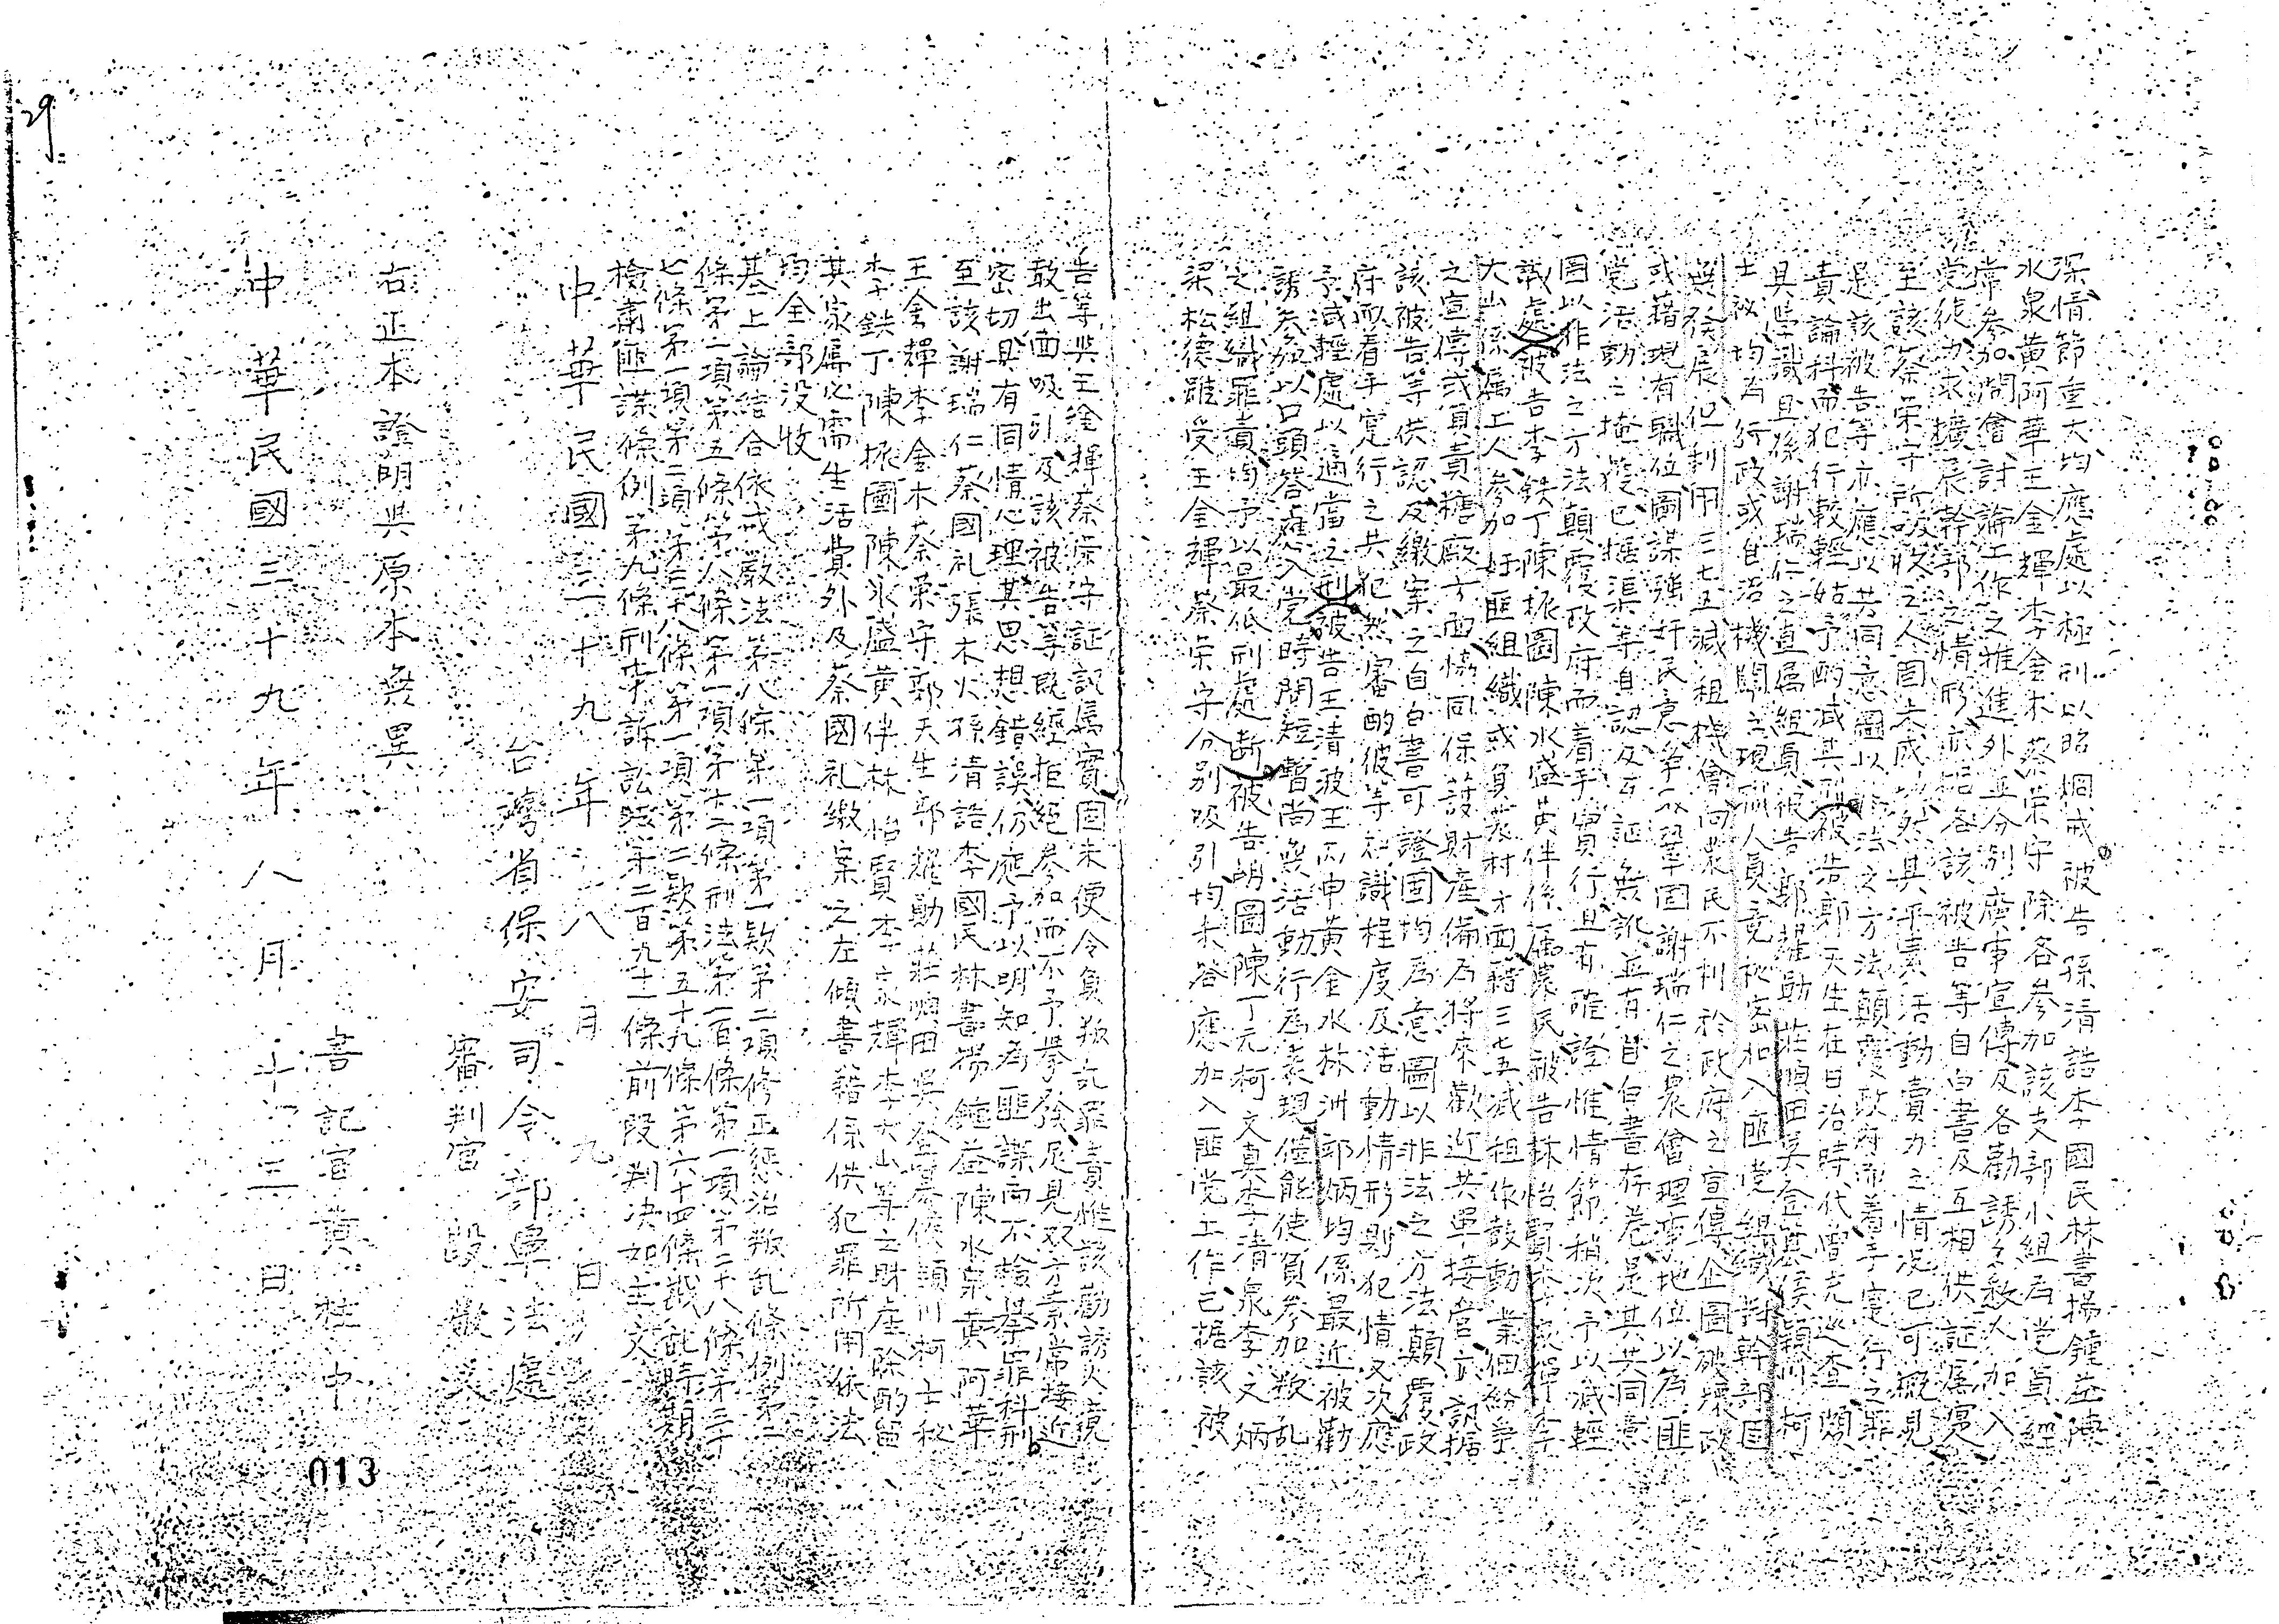 深情節重大均應處以極刑以昭烱戒被告孫清誥李國民林書揚鍾益陳
水泉黃阿華王金輝李金木蔡榮守除各參加該支部小組為党員經
常參加開會討論工作之推進外並分別廣事宣傳及各勸誘多数人加入
党從力求擴展幹部之情形亦据各該被告等自白書及互相供証属實
至該蔡榮守所吸收之人固未成功然其平素活動賣力之情況已可概見
是該被告等亦應以共同意圖以非法之方法顛覆政府而着手實行之罪
責論科而犯行較輕姑予酌减其刑被告郭天生在日治時代曾充巡查頗
具學識且係謝瑞仁之直屬組員被告郭耀勛莊順田吳登基侯穎川柯
士 均為行政或自治機關之現職人員竟秘密加入匪党組織對幹部固
無發展但利用三七五減租機會向農民不利於政府之宣傳企圖破壞政
或藉現有職位圖謀強奸民意爭取鞏固謝瑞仁之農會理事地位以為匪
党活動之掩護已据渠等自認及互証無訛並有自白書存卷是其共同意
圖以非法之方法顛覆政府而着手實行且有確證惟情節稍次予以減輕
議處被告李鉄丁陳振園陳水盛黃伴係屬農民被告林怡賢李家輝李
大山係属工人參加奸匪組織或負農村方面藉三七五減租作鼓動業佃紛爭
之宣傳或負責糖廠方面協同保護財產備為將來歡迎共軍接管亦訊据
該被告等供認及繳案之自白書可證固均為意圖以非法之方法顛覆政
府而着手實行之共犯然審酌彼等知識程度及活動情形則犯情又次應
予減輕處以適當之刑被告王清波王丙申黃金水林洲邱炳均係最近被勸
誘參加以口頭答應入党時間短暫尚無活動行為表現僅能使負參加叛乱
之組織罪責均予以最低刑處断被告胡圖陳丁元柯文真李清泉李文炳
梁松德雖受王金輝蔡榮守分别吸引均未答應加入匪党工作已据該被
告等與王金輝蔡榮守証訊屬實固未便令負叛乱罪責惟該勸誘火竟
敢出面吸引及該被告等既經拒絕參加而不予舉發足見双方素常接近
密切具有同情心理其思想錯誤仍應予以明知為匪諜而不檢舉罪科刑
至該謝瑞仁蔡國礼張木火孫清誥李國民林書揚鍾益陳水泉黃阿華
王金輝李金木蔡榮守郭天生郭耀勛莊順田吳登基侯穎川柯士
李鉄丁陳振園陳水盛黃伴林怡賢李家輝李大山等之財産除酌留
其家屬必需生活費外及蔡國礼繳案之左傾書籍係供犯罪所用依法
均全部没收
基上論結合依戒嚴法第八條第一項第一款第二項修正惩治叛乱條例第二
條第一項第五條第八條第一項第十二條刑法第一百條第一項第二十八條第三十
七條第一項第二項第三十八條第一項第二款第五十九條第六十四條戡乱時期
檢肅匪諜條例第九條刑事訴訟法第二百九十一條前段判决如主文
中華民國三十九年八月九日
台灣省保安司令部軍法處
審判官 段
右正本證明與原本無異
書記官黃桂中
中華民國三十九年八月十二日
013
29